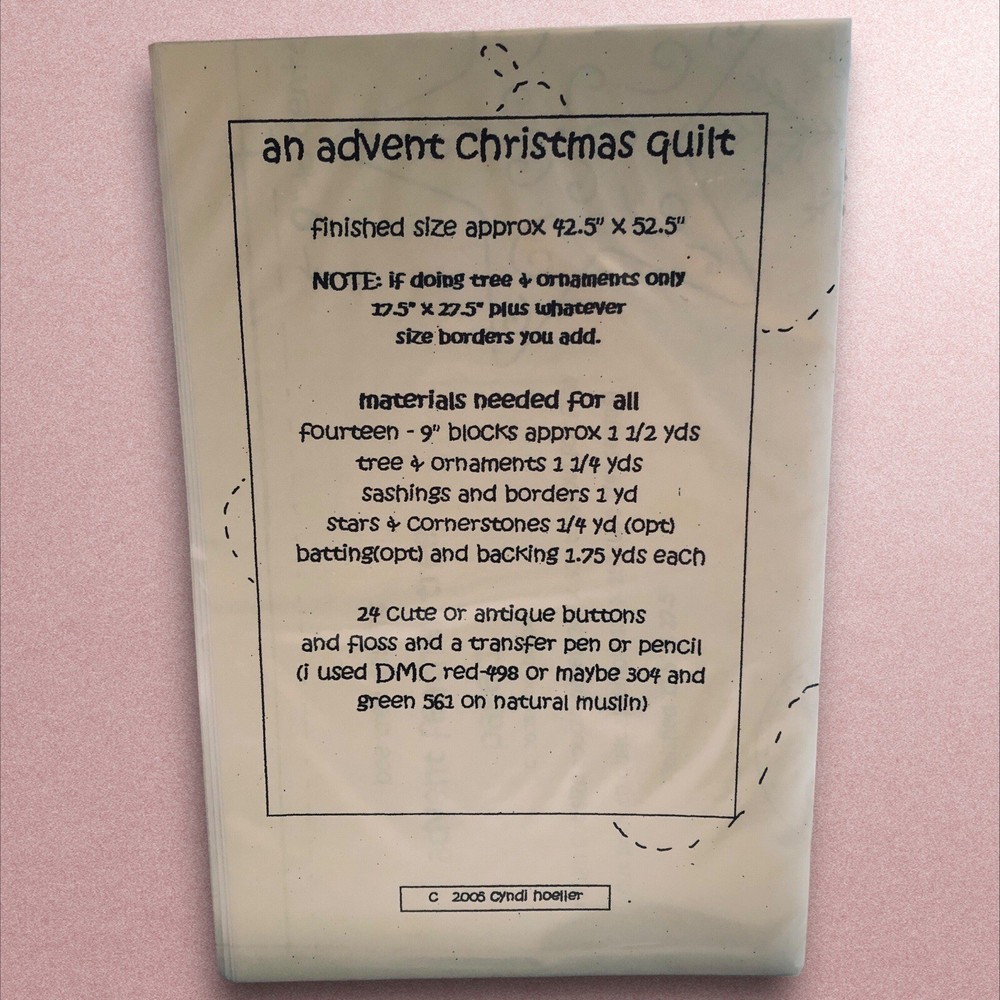 an advent christmas quilt
finished size approx 42.5" x 52.5"
NOTE: if doing tree & ornaments only
17.5" x 27.5" plus whatever
size borders you add.
materials needed for all
fourteen - 9" blocks approx 1 1/2 yds
tree & ornaments 1 1/4 yds
sashings and borders 1 yd
stars & cornerstones 1/4 yd (opt)
batting(opt) and backing 1.75 yds each
24 cute or antique buttons
and floss and a transfer pen or pencil
(i used DMC red-498 or maybe 304 and
green 561 on natural muslin)
c 2005 cyndi hoeller